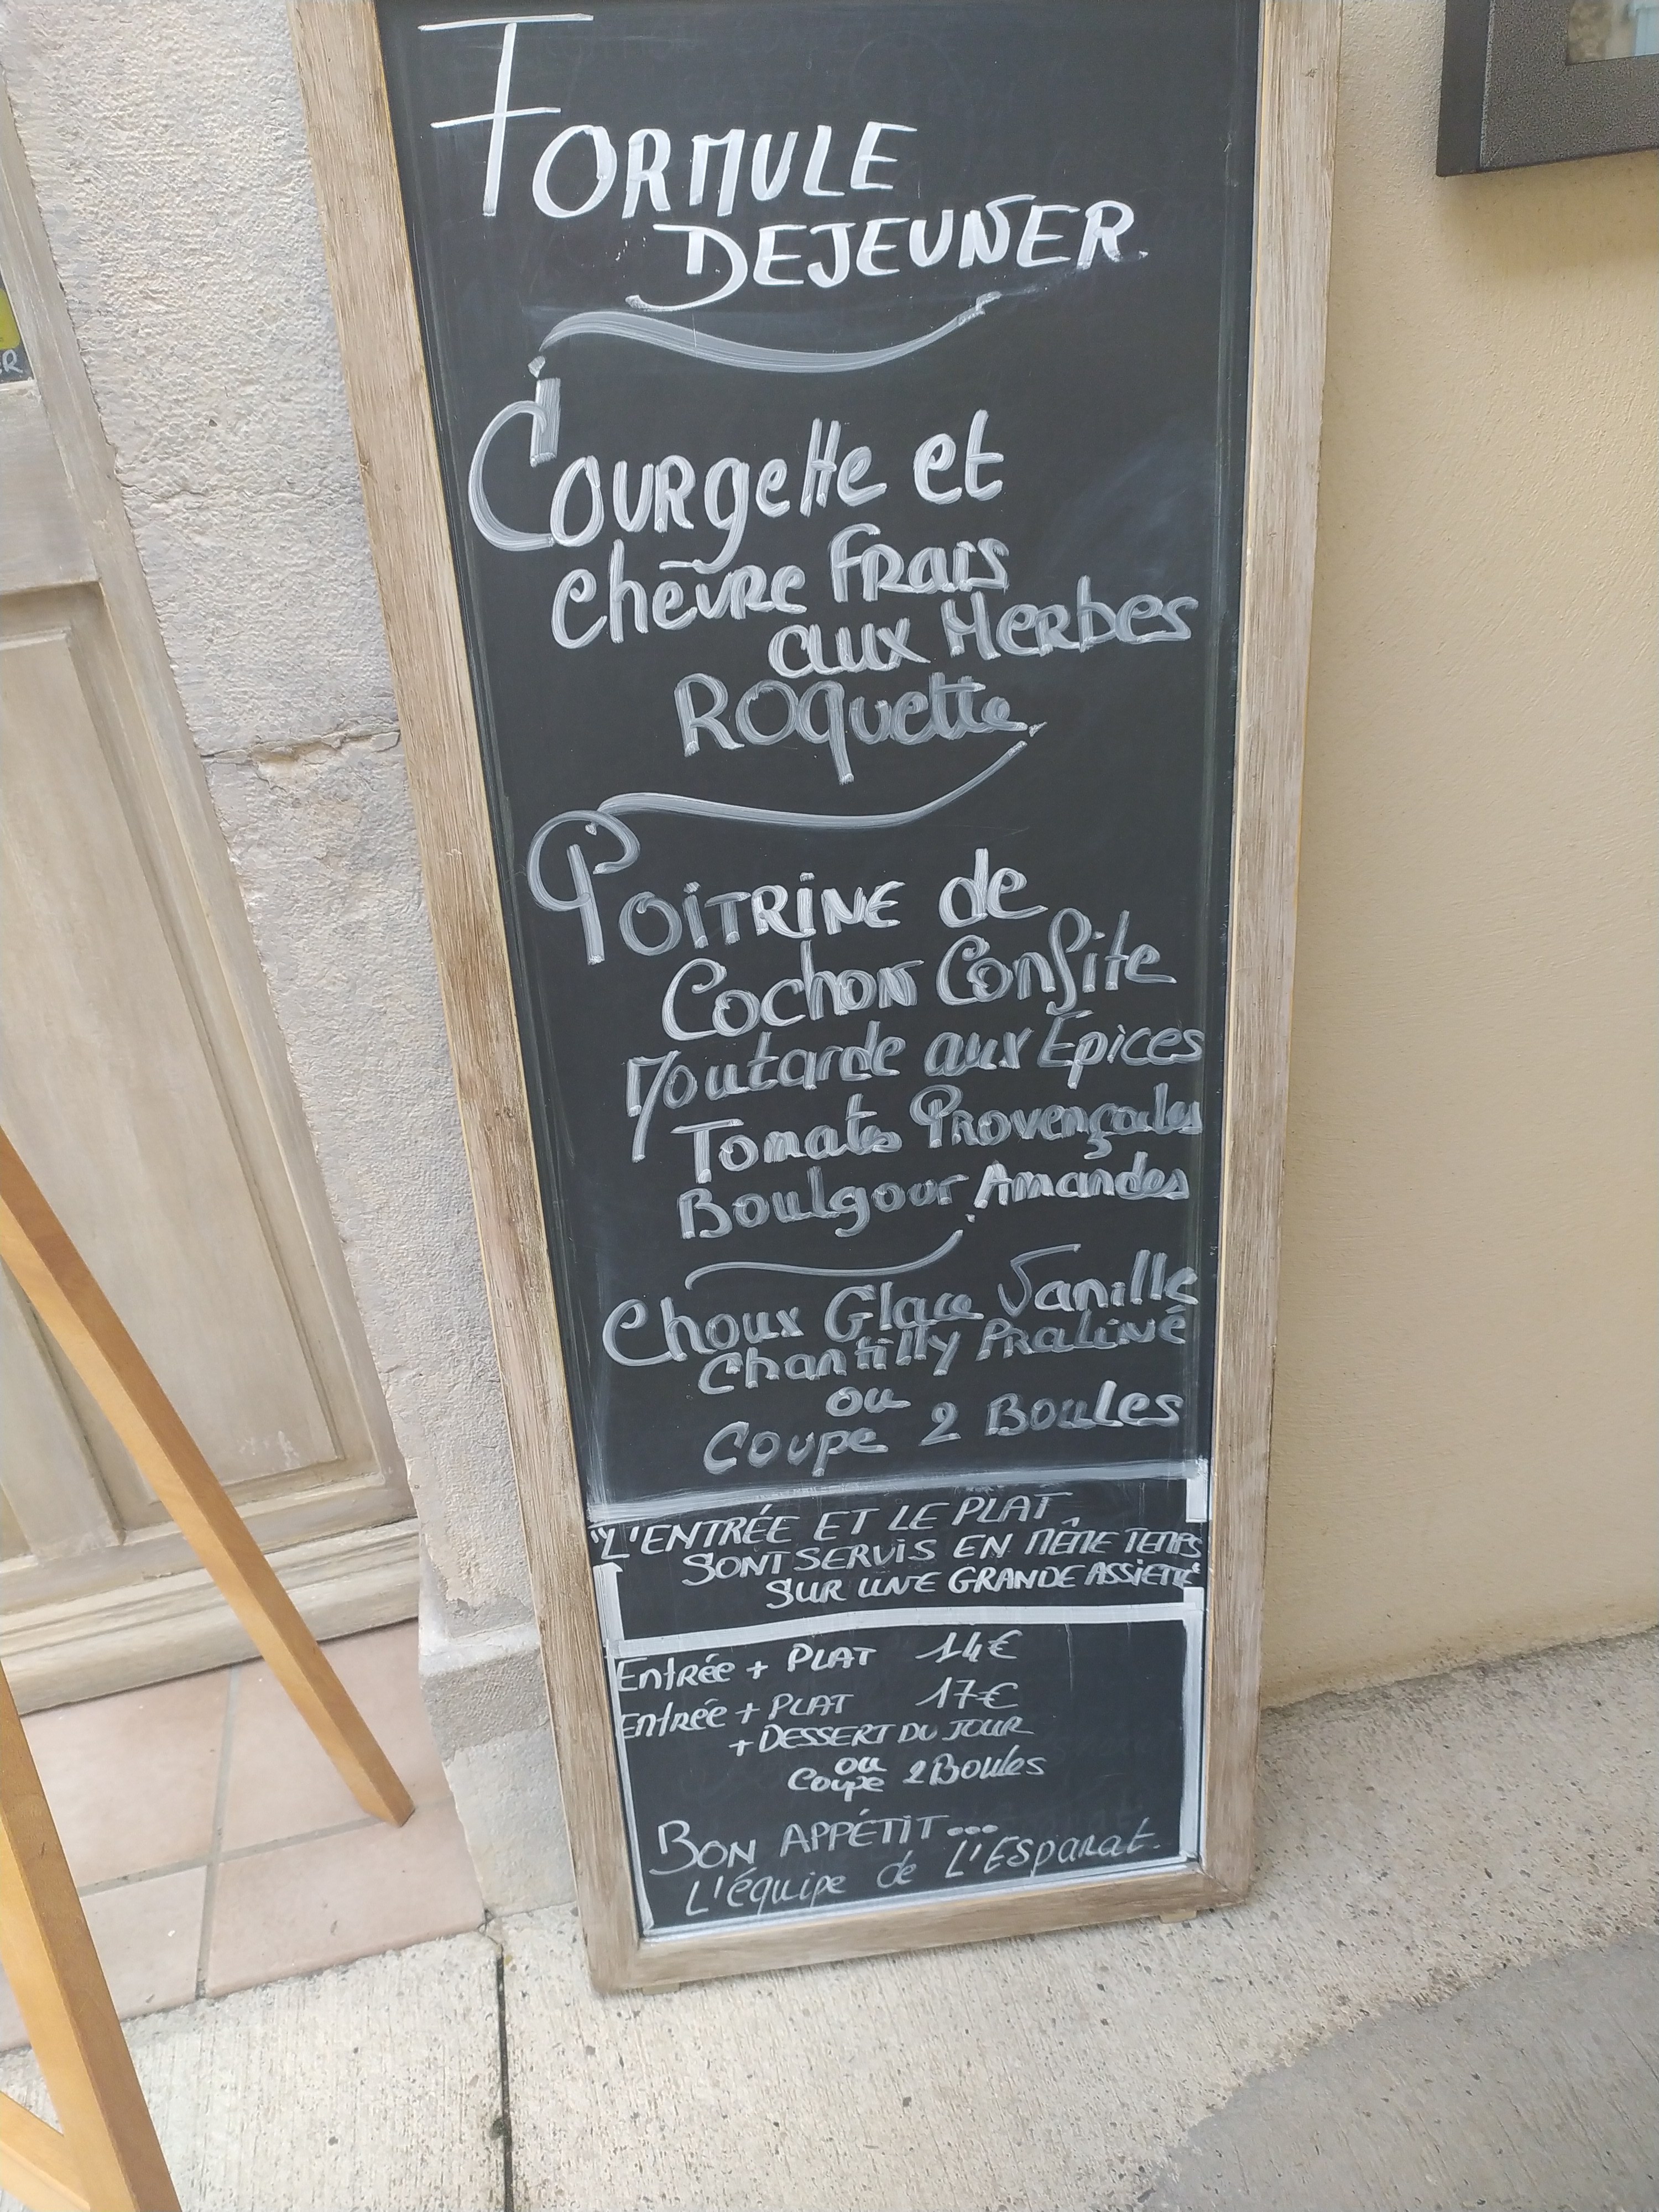 FORMULE
DEJEUNER.
Courgette et
Chèvre Frais
aux Herbes
Roquette
Poitrine de
Cochon Confite
Moutarde aux Epices
Tomates Provençales
Boulgour Amandes
Choux Glace Vanille
Chantilly Praliné
ou
Coupe 2 Boules
"L'ENTRÉE ET LE PLAT
SONT SERVIS EN MÊME TEMPS
SUR UNE GRANDE ASSIETTE"
Entrée + PLAT 14€
Entrée + PLAT 17€
+ DESSERT DU JOUR
ou
Coupe 2 Boules
BON APPÉTIT...
L'équipe de L'Esparat.